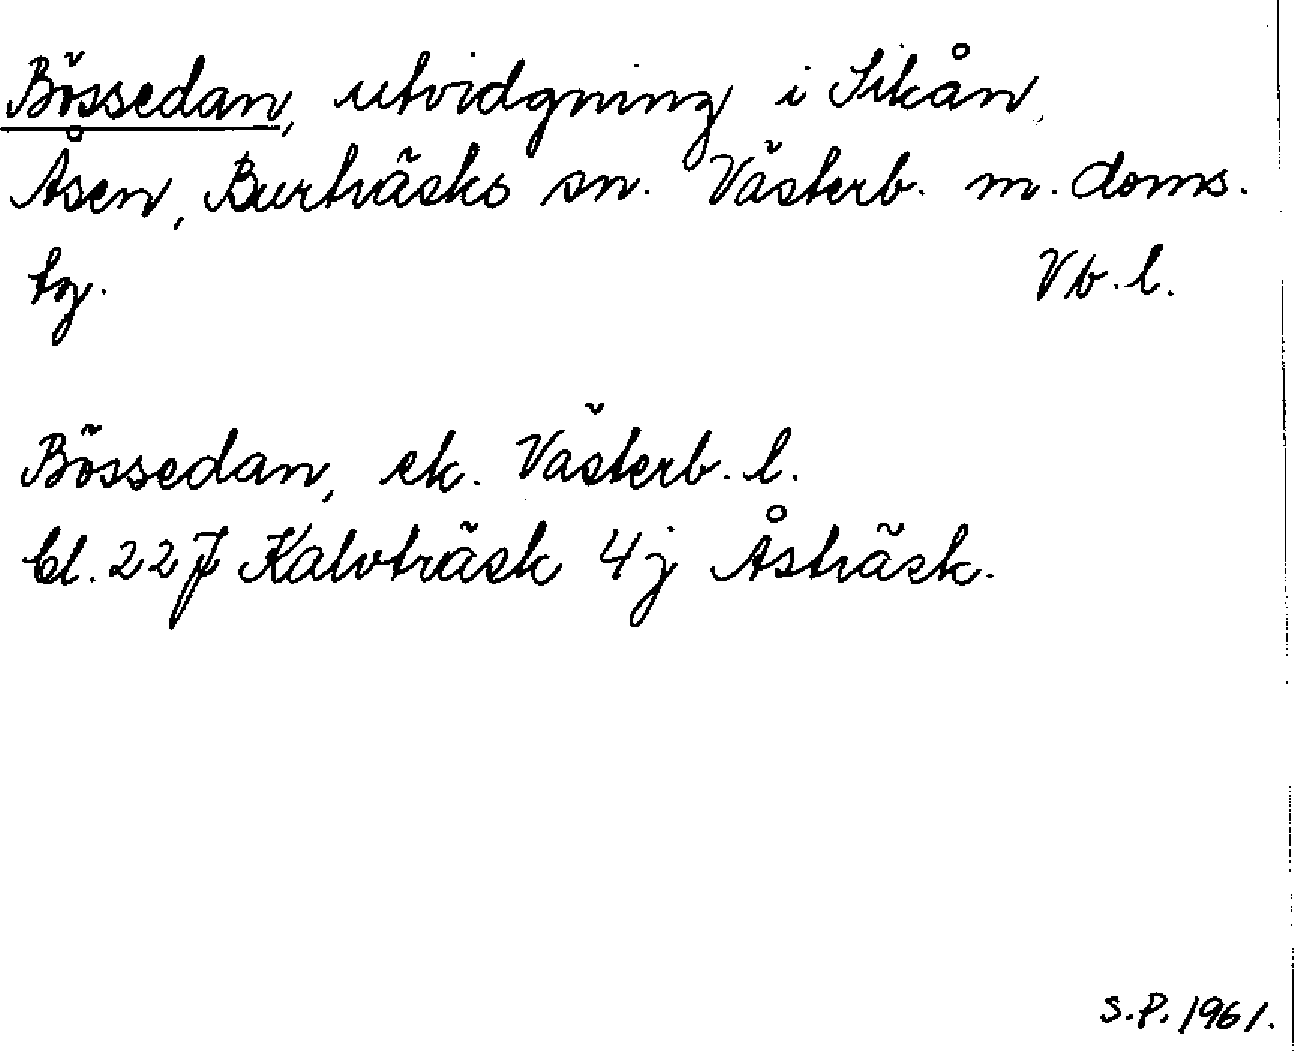 Bössedan, utvidgning i Sikån,
Åsen, Burträsks sn. Västerb. m. doms.
tg. Vb. l.
Bössedan, ek. Västerb. l.
bl. 22 J Kalvträsk 4j Åsträsk.
S.P. 1961.